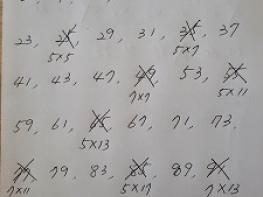 23, 25, 29, 31, 35, 37
5×5 5×7
41, 43, 47, 49, 53, 55
7×7 5×11
59, 61, 65, 67, 71, 73,
5×13
77 79, 83, 85 89, 91
7×11 5×17 7×13